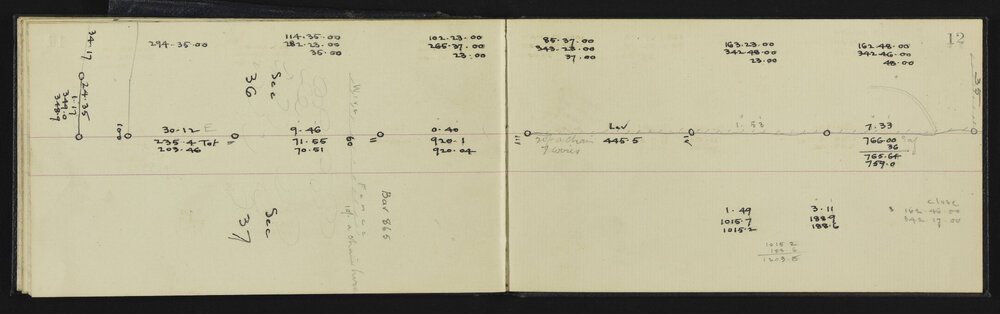 12
34.17
24.35
1.17
349.0
348.9
294.35.00
114.35.00
282.23.00
35.00
102.23.00
265.37.00
23.00
See
36
30.12 E
235.4 Tot
203.46
9.46
71.55
70.51
60
0.40
920.1
920.04
See
37
Wire
Fence
Bar 865
85.37.00
343.23.00
37.00
163.23.00
342.48.00
23.00
162.48.00
342.46.00
48.00
Lev
445.5
7 wires
1.53
7.33
766.00
36
765.64
759.0
1.49
1015.7
1015.2
3.11
188.9
188.6
close
162 46 00
342 17 00
1015.2
188.6
1203.8